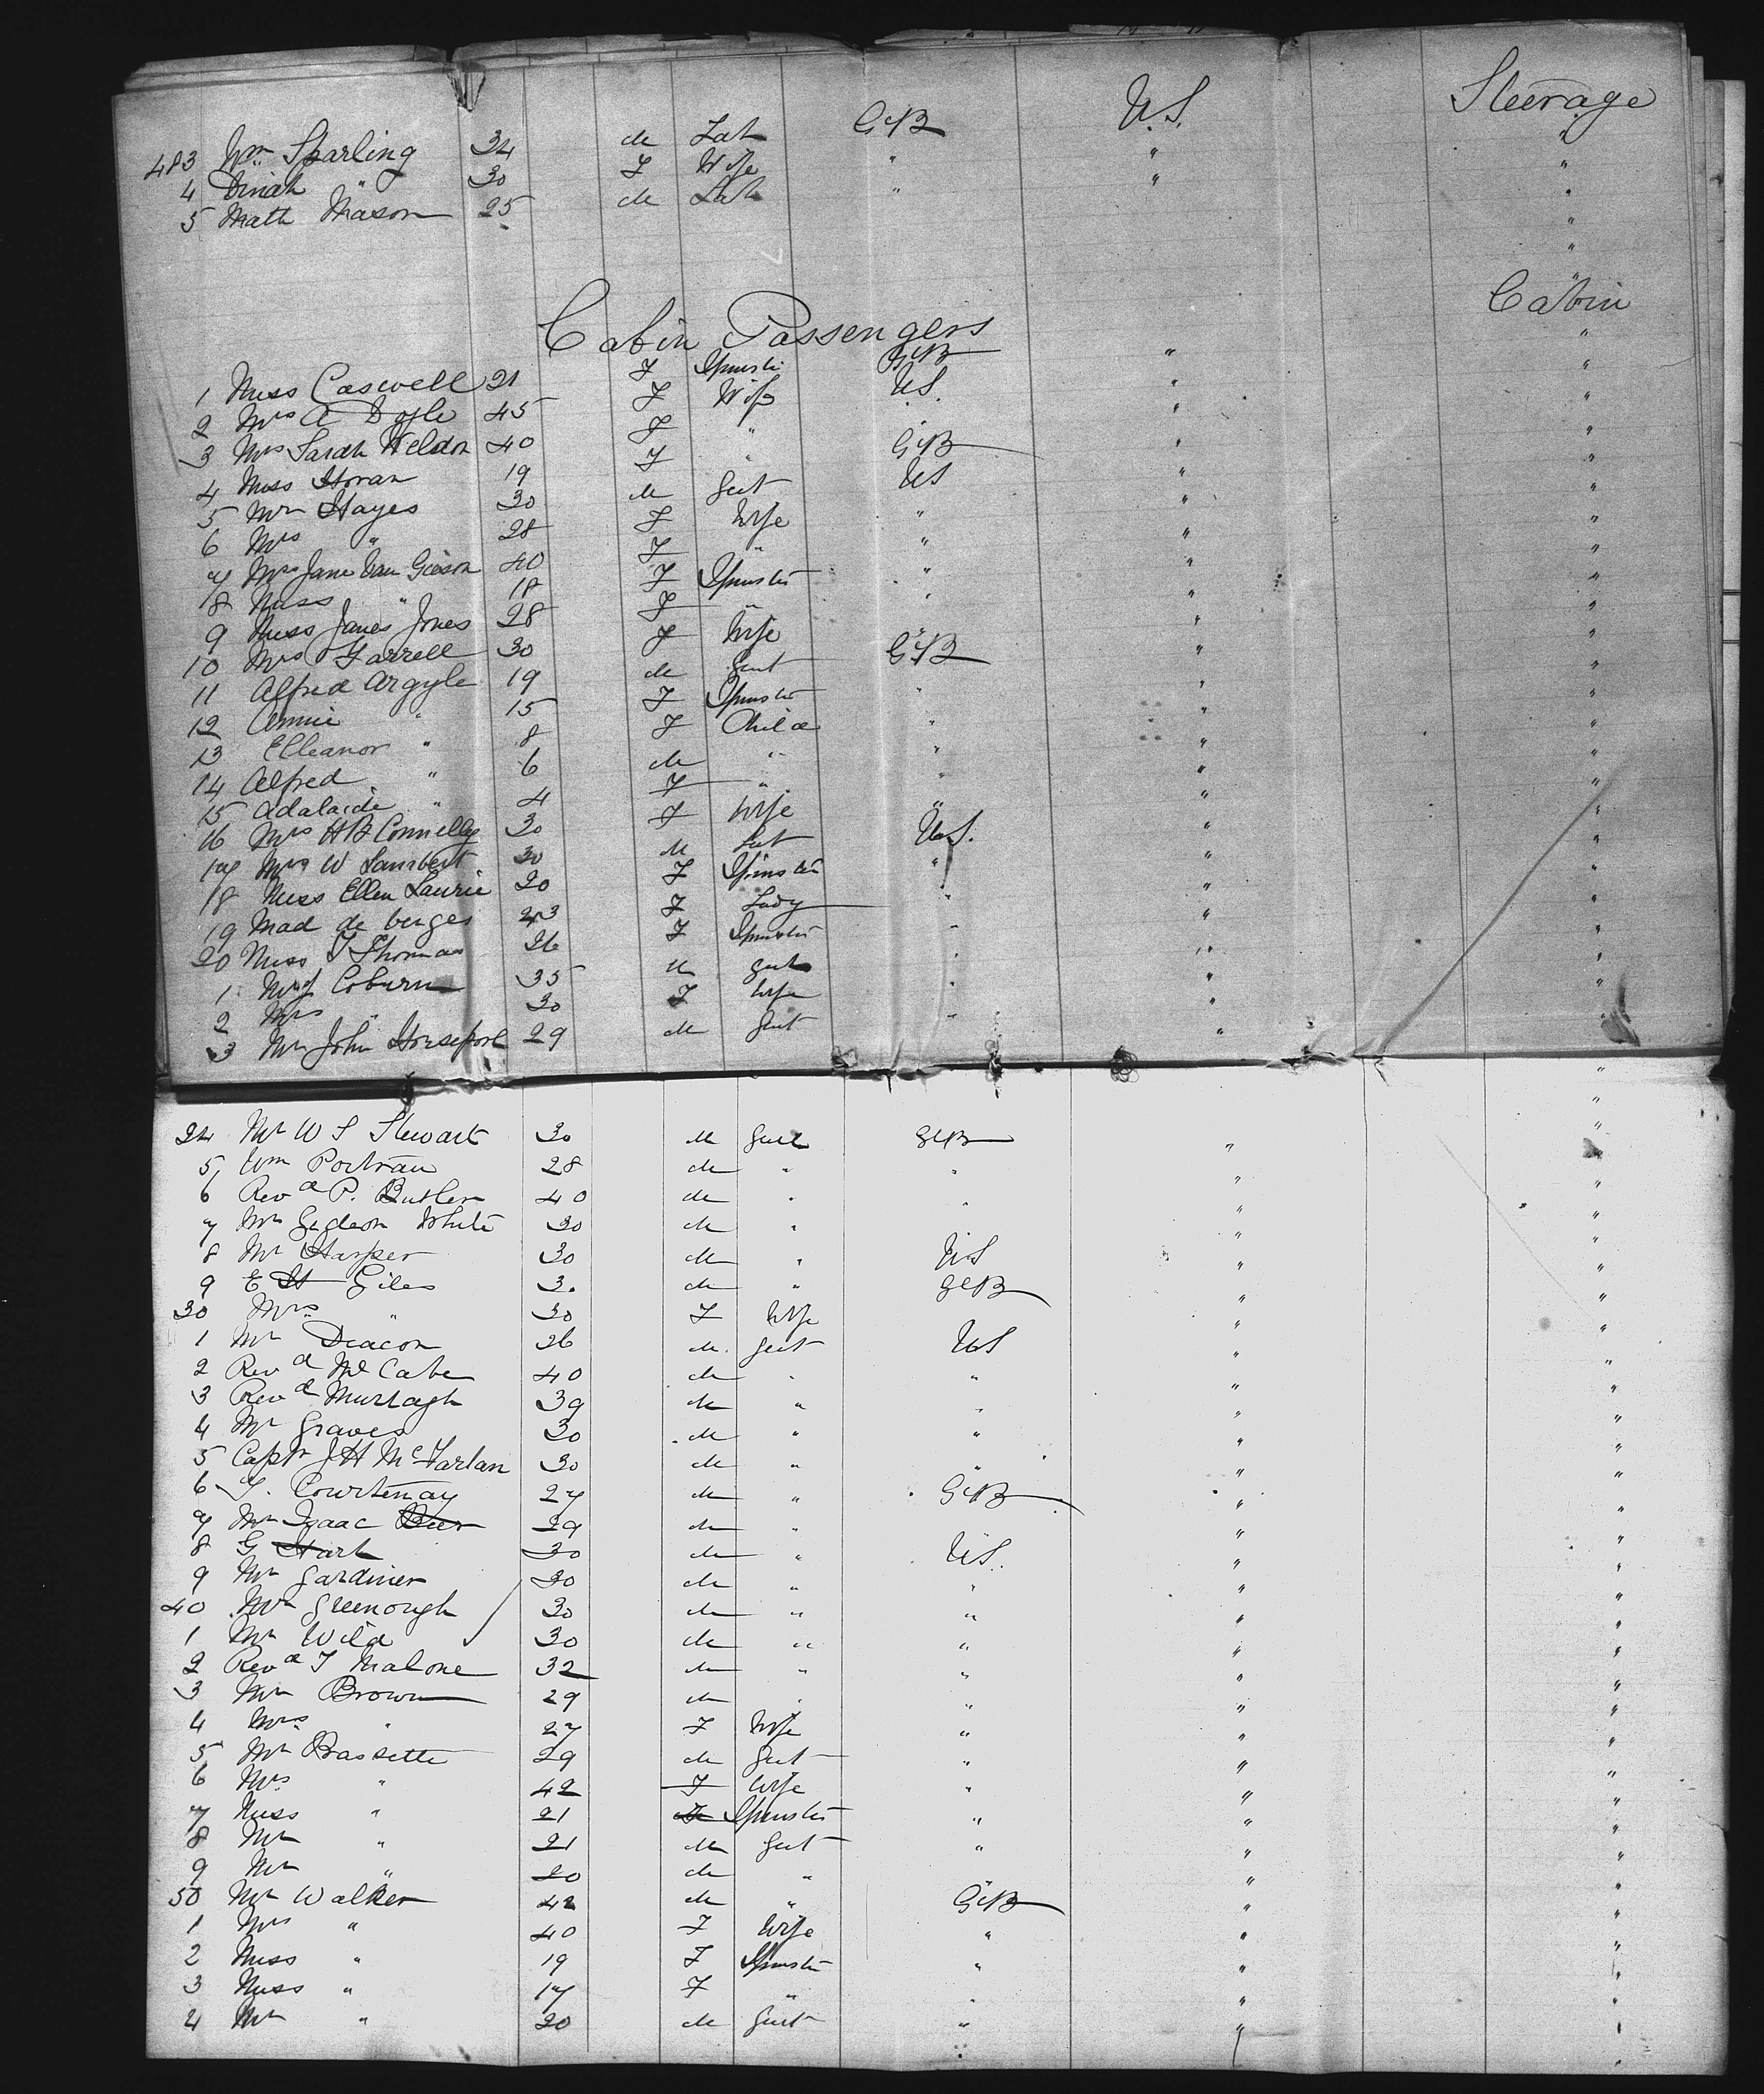 Steerage
483 Wm Sparling 34 M Lab GB U.S. "
4 Dinah " 30 F Wife " " "
5 Math Mason 25 M Lab " " "
Cabin
Cabin Passengers
1 Miss Caswell 21 F Spinster GB " "
2 Mrs A Doyle 45 F Wife US " "
3 Mrs Sarah Weldon 40 F " " "
4 Miss Horan 19 F GB " "
5 Mr Hayes 30 M Gent US " "
6 Mrs " 28 F Wife " " "
7 Mrs Jane Van Gieson 40 F " " " "
8 Miss " 18 F Spinster " " "
9 Miss Janes Jones 28 F " " " "
10 Mrs Farrell 30 F Wife " " "
11 Alfred Argyle 19 M Gent GB " "
12 Annie " 15 F Spinster " " "
13 Elleanor " 8 F Child " " "
14 Alfred " 6 M " " " "
15 Adalaide " 4 F " " " "
16 Mrs H B Connelly 30 F Wife " " "
17 W Lambert 30 M U.S. " "
18 Miss Ellen Laurie 20 F Spinster " " "
19 Mad de berges 23 F Lady " " "
20 Miss T Thomas 26 F Spinster " " "
1 Coburn 35 M Gent " " "
2 Mrs " 30 F Wife " " "
3 Mr John Horsepool 29 M Gent " " "
24 Mr W S Stewart 30 M Gent GB " "
5 Wm Portrau 28 M " " " "
6 Revd P. Butler 40 M " " " "
7 Mr Gideon White 30 M " " " "
8 Mr Harper 30 M " US " "
9 E St Giles 30 M " GB " "
30 Mrs " 30 F Wife " "
1 Mr Deacon 26 M Gent US " "
2 Revd Mc Cabe 40 M " " " "
3 Revd Murtagh 39 M " " " "
4 Mr Graves 30 M " " " "
5 Captn J H McFarlan 30 M " " " "
6 T. Courtenay 27 M " GB " "
7 Mr Isaac Beer 29 M " " "
8 G Hart 30 M " US. " "
9 Mr Gardiner 30 M " " " "
40 Mr Greenough 30 M " " " "
1 Mr Wild 30 M " " " "
2 Revd T Malone 32 M " " " "
3 Mr Brown 29 M " " " "
4 Mrs " 27 F Wife " " "
5 Mr Bassette 29 M Gent " " "
6 Mrs " 42 F Wife " " "
7 Miss " 21 F Spinster " " "
8 Mr " 21 M Gent " " "
9 Mr " 20 M " " "
50 Mr Walker 42 M " GB " "
1 Mrs " 40 F Wife " " "
2 Miss " 19 F Spinster " " "
3 Miss " 17 F " " " "
4 Mr " 20 M Gent " " "